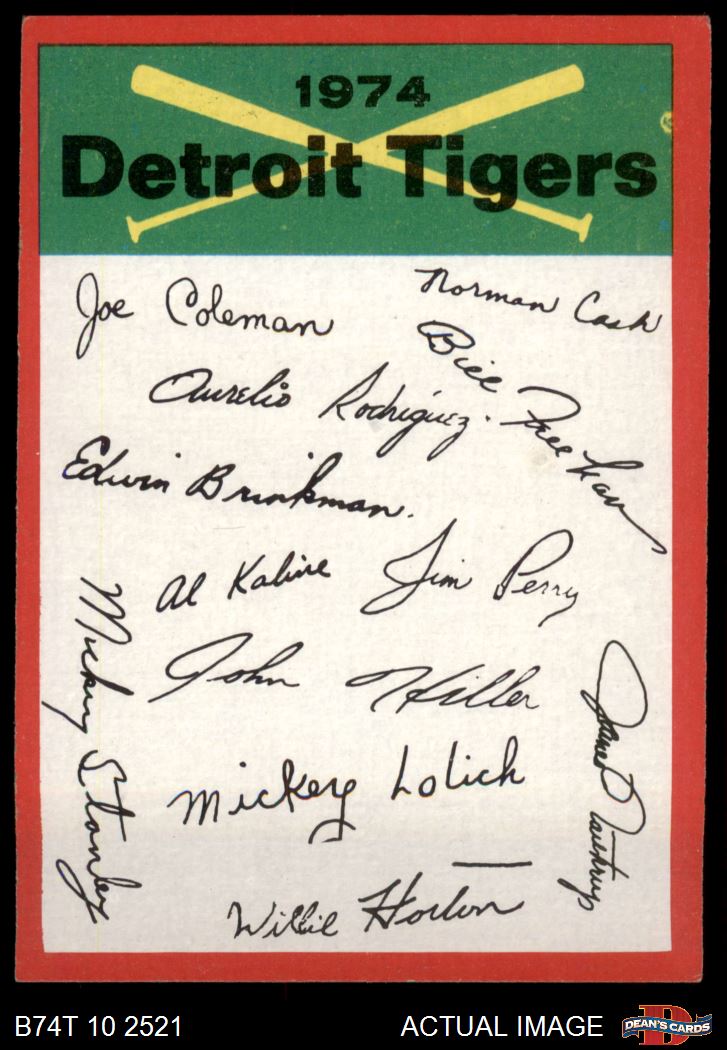 1974
Detroit Tigers
Joe Coleman
Norman Cash
Aurelio Rodriguez.
Bill Freehan
Edwin Brinkman.
Al Kaline
Jim Perry
Mickey Stanley
John Hiller
James Northrup
Mickey Lolich
Willie Horton
B74T 10 2521
ACTUAL IMAGE
D
DEAN'S CARDS